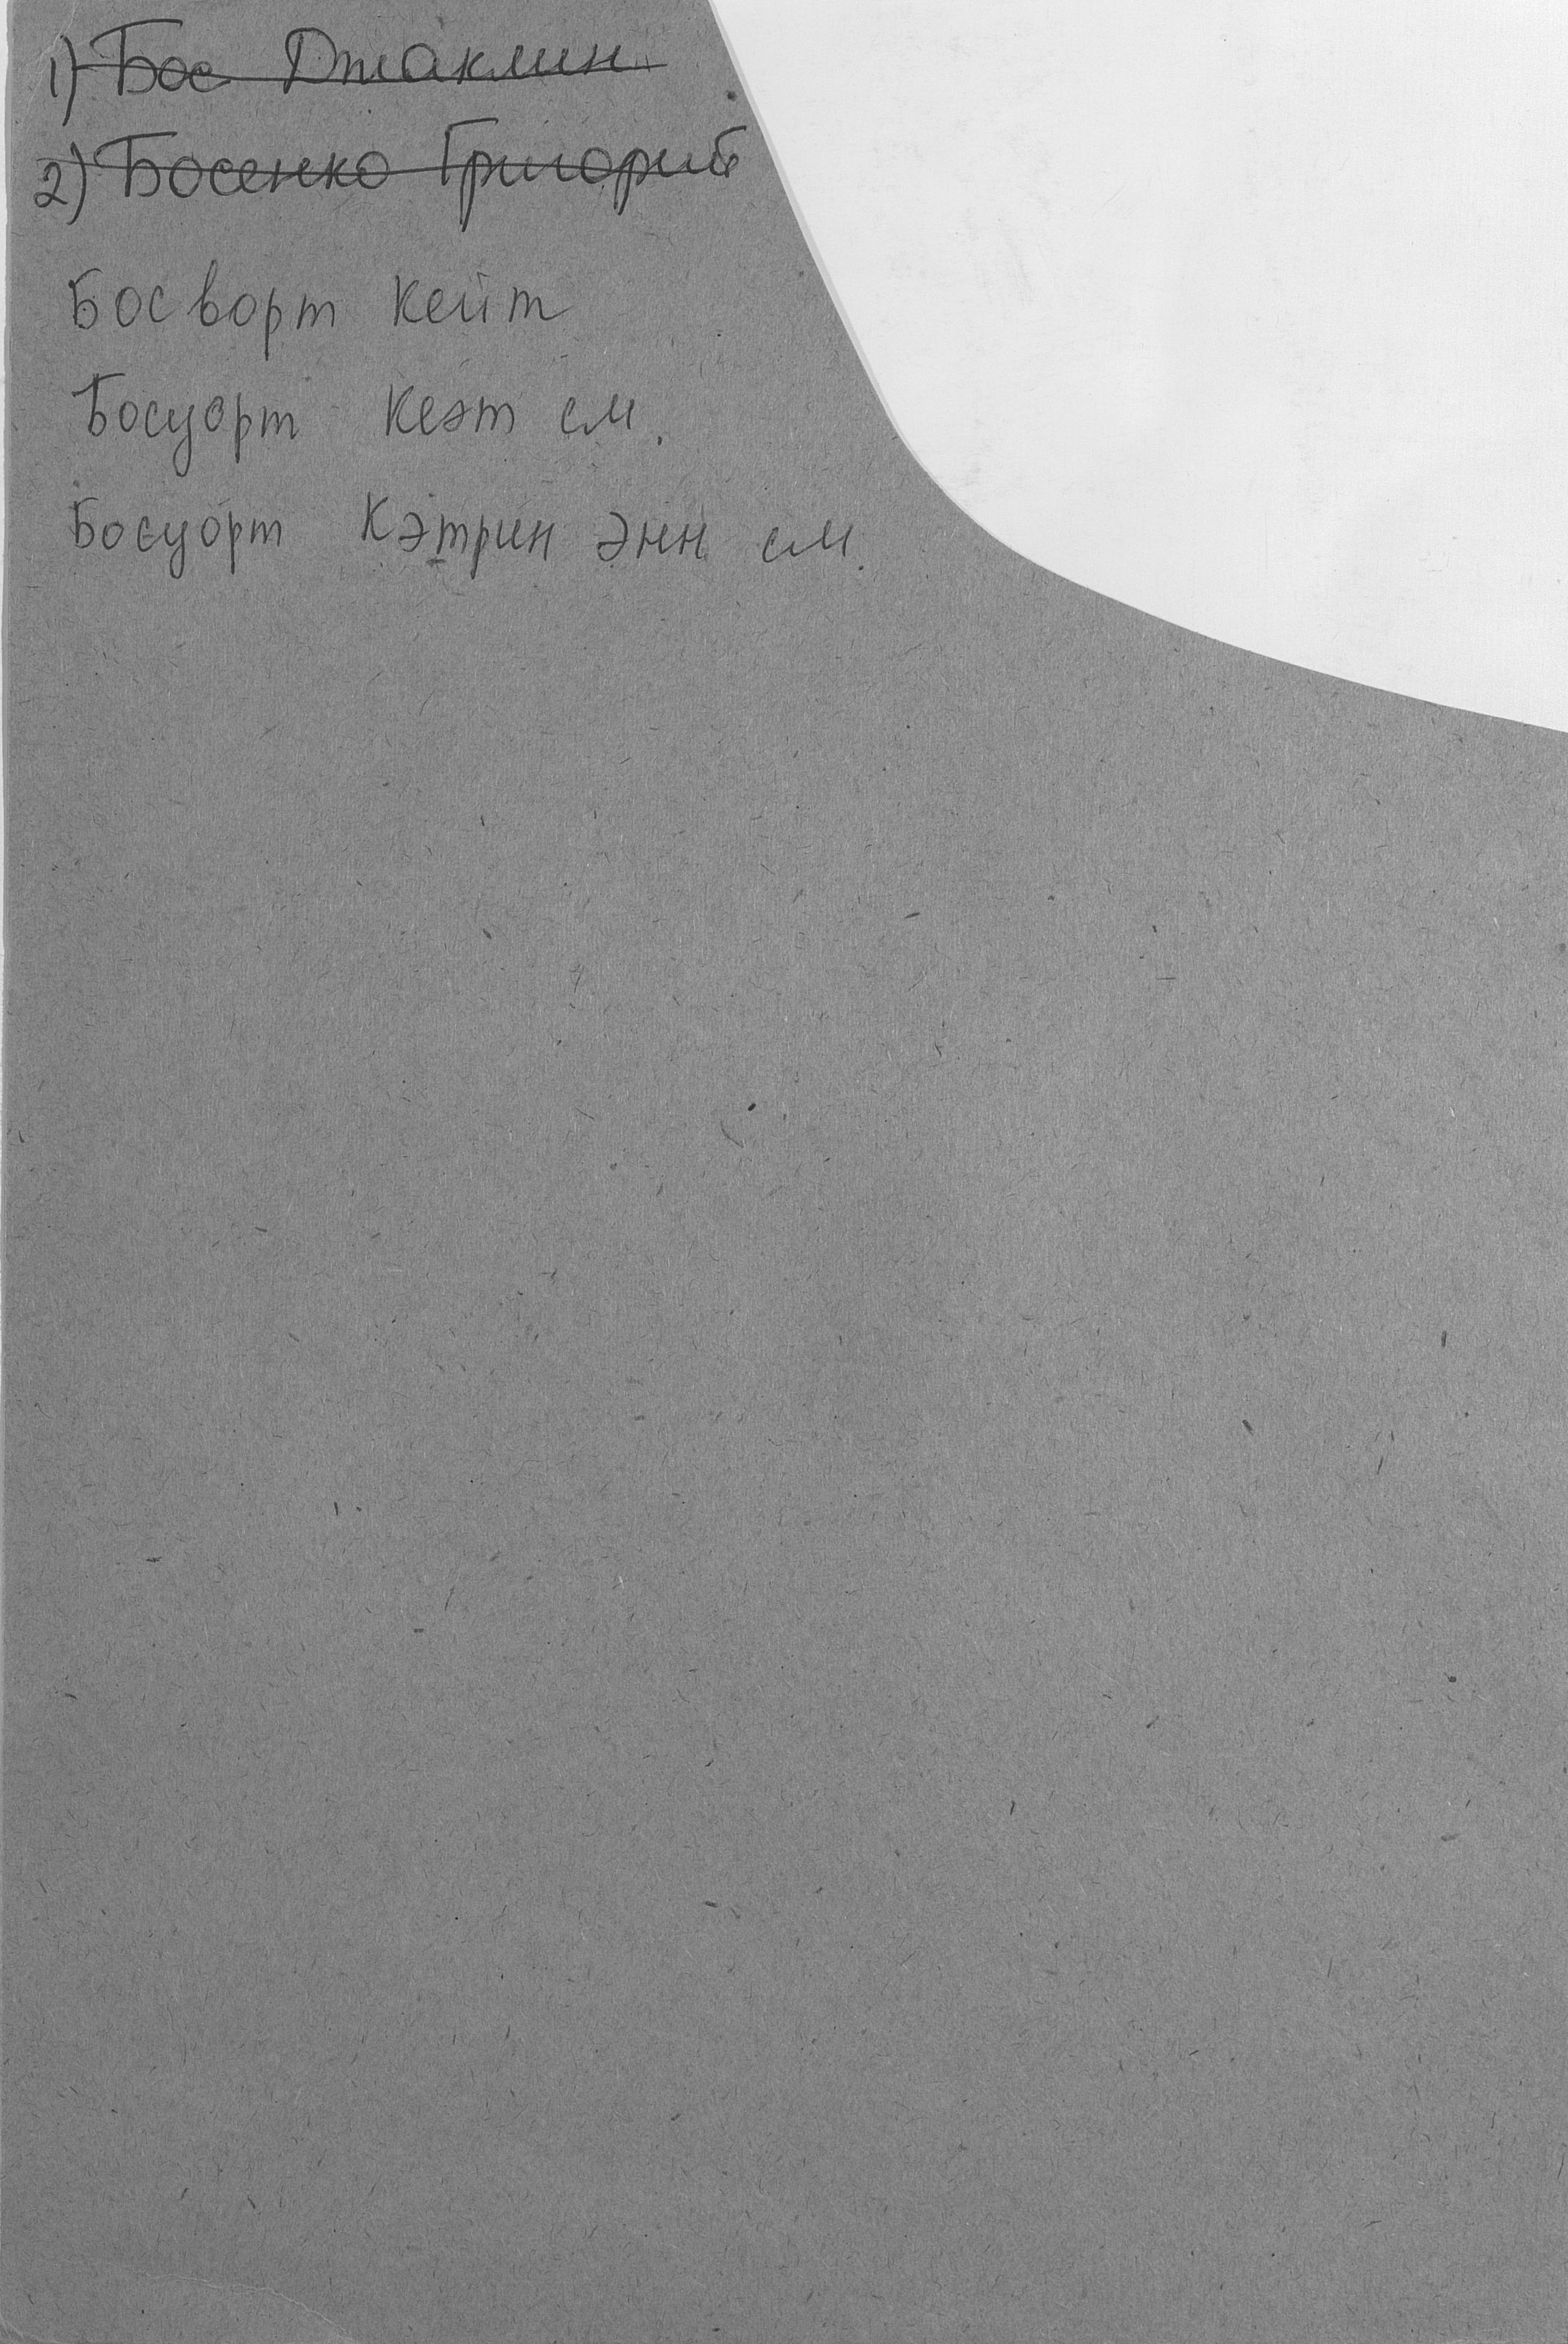 1) Бос Джаклин
2) Босенко Григорий
Босворт Кейт
Босуорт Кеэт см.
Босуорт Кэтрин Энн см.